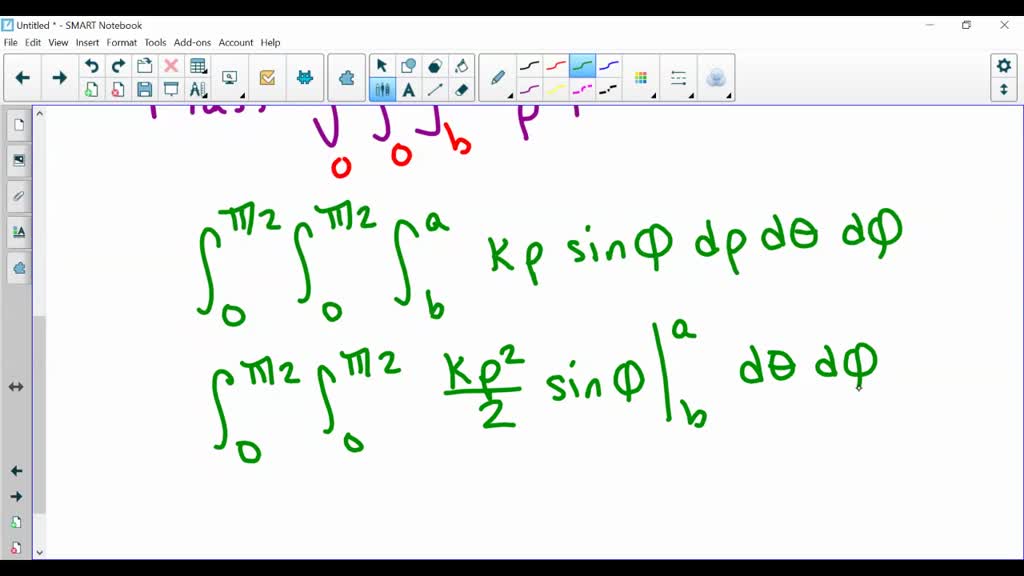 Untitled * - SMART Notebook
File Edit View Insert Format Tools Add-ons Account Help
0 0 b ρ
∫₀^π/2 ∫₀^π/2 ∫_b^a kρ sinφ dρ dθ dφ
∫₀^π/2 ∫₀^π/2 kρ²/2 sinφ |_b^a dθ dφ